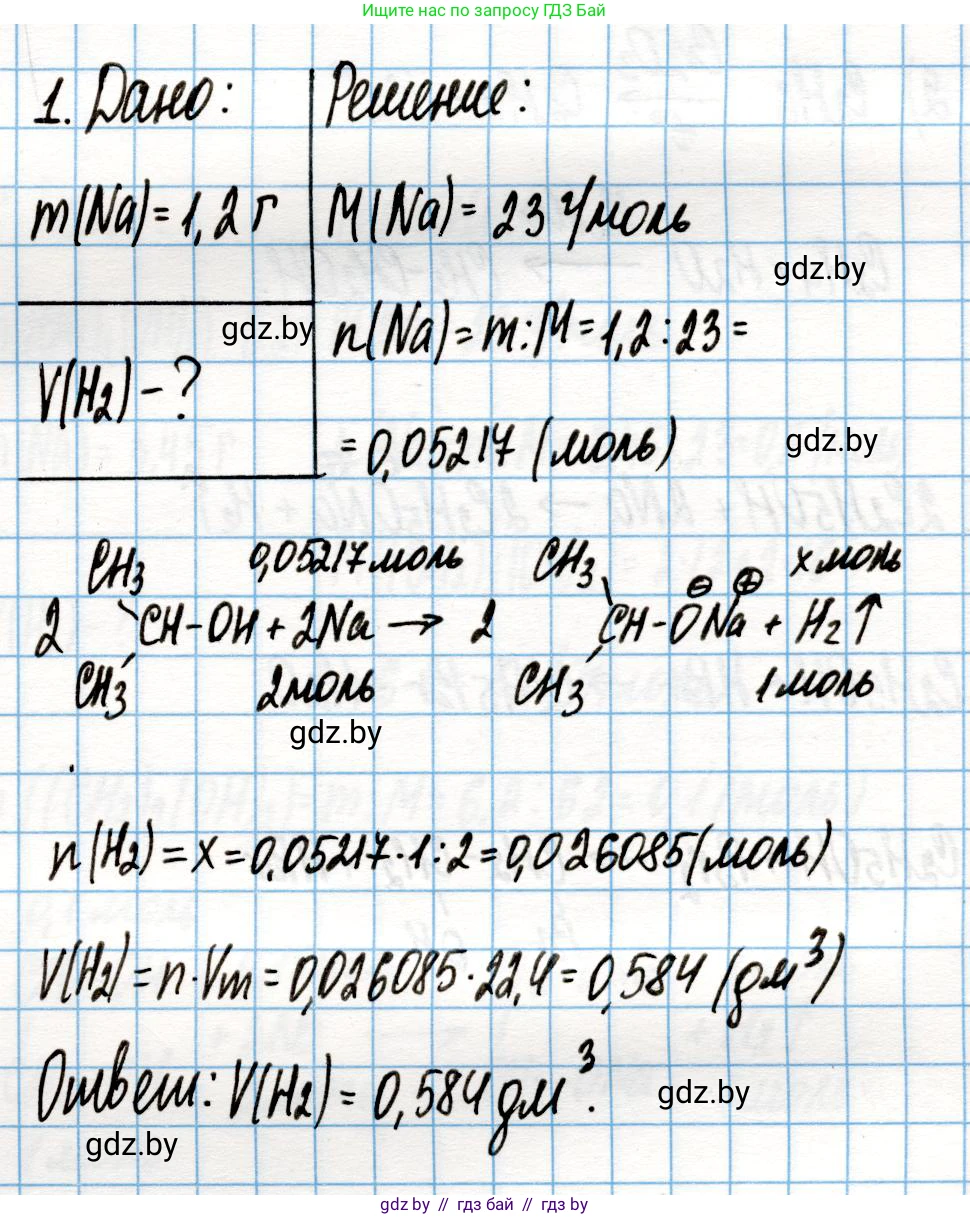 Ищите нас по запросу ГДЗ Бай
1. Дано:
m(Na) = 1,2 г
V(H₂) - ?
Решение:
M(Na) = 23 г/моль
gdz.by
n(Na) = m : M = 1,2 : 23 =
gdz.by
= 0,05217 (моль)
gdz.by
CH₃ 0,05217 моль CH₃ x моль
2 CH-OH + 2Na → 2 CH-O⊖Na⊕ + H₂↑
CH₃ 2 моль CH₃ 1 моль
gdz.by
n(H₂) = x = 0,05217 · 1 : 2 = 0,026085 (моль)
V(H₂) = n · Vm = 0,026085 · 22,4 = 0,584 (дм³)
Ответ: V(H₂) = 0,584 дм³.
gdz.by
gdz.by
gdz.by // гдз бай // gdz by